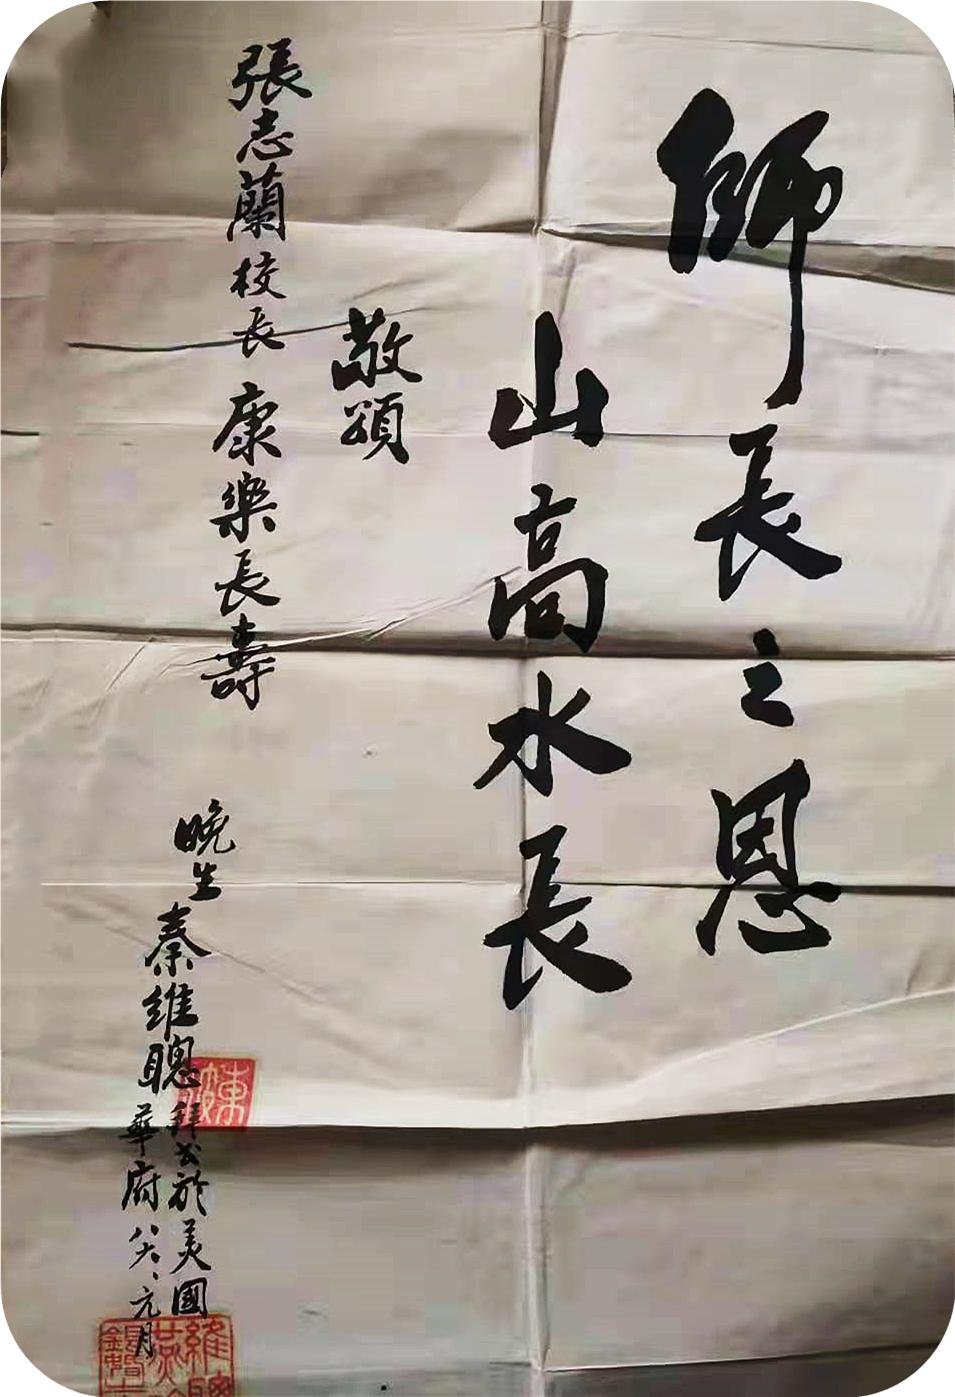 師長之恩
山高水長
敬頌
張志蘭校長 康樂長壽
晚生 秦維聰 拜書於美國
華府 八六、元月